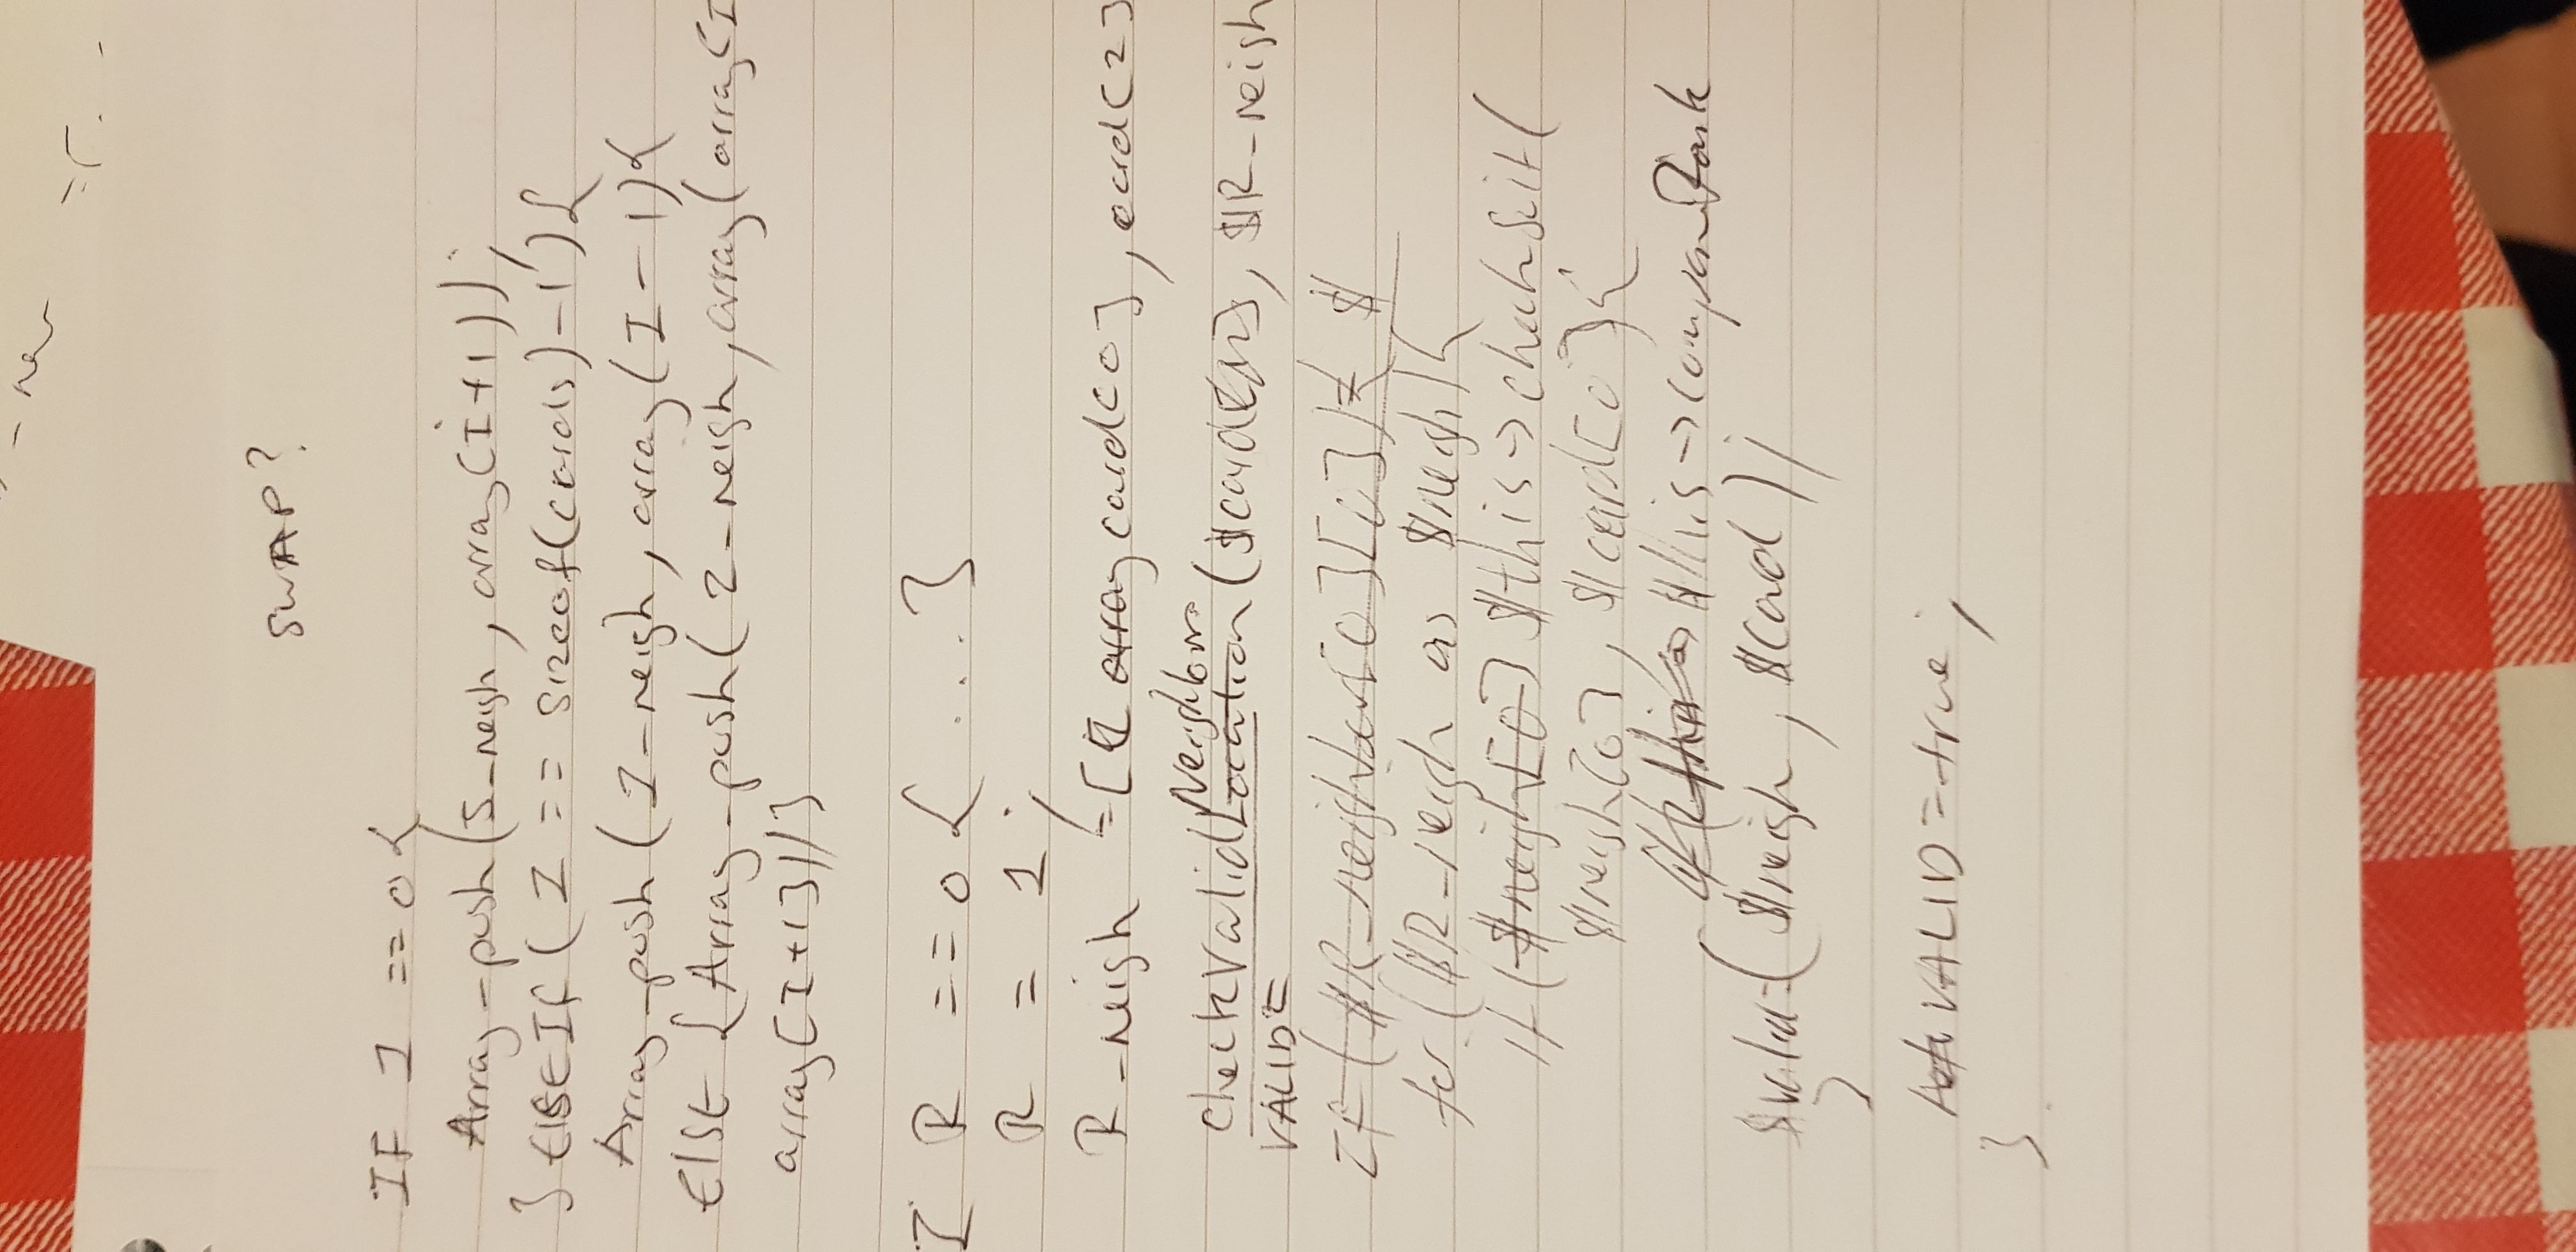 SWAP?
IF I == 0 {
Array_push(I_neigh, array(I+1));
} ELSEIF ( I == sizeof(cards)-1){
Array_push (I_neigh, array(I-1){
ELSE { Array_push( I_neigh, array( array[I
array[I+1]))}
I R == 0 { ... }
R = 1;
R_neigh =[ array card[0], card[2]
Neighbours
checkValidLocation ($card[], $R_neigh
VALID=
IF ($R_neighbour[0][0]) $
for ($R_neigh as $neigh){
if ($neigh[0] $this->checkSuit(
$neigh[0], $card[0]{
$this->compareRank
$valid=( $neigh, $card);
}
VALID=true;
}